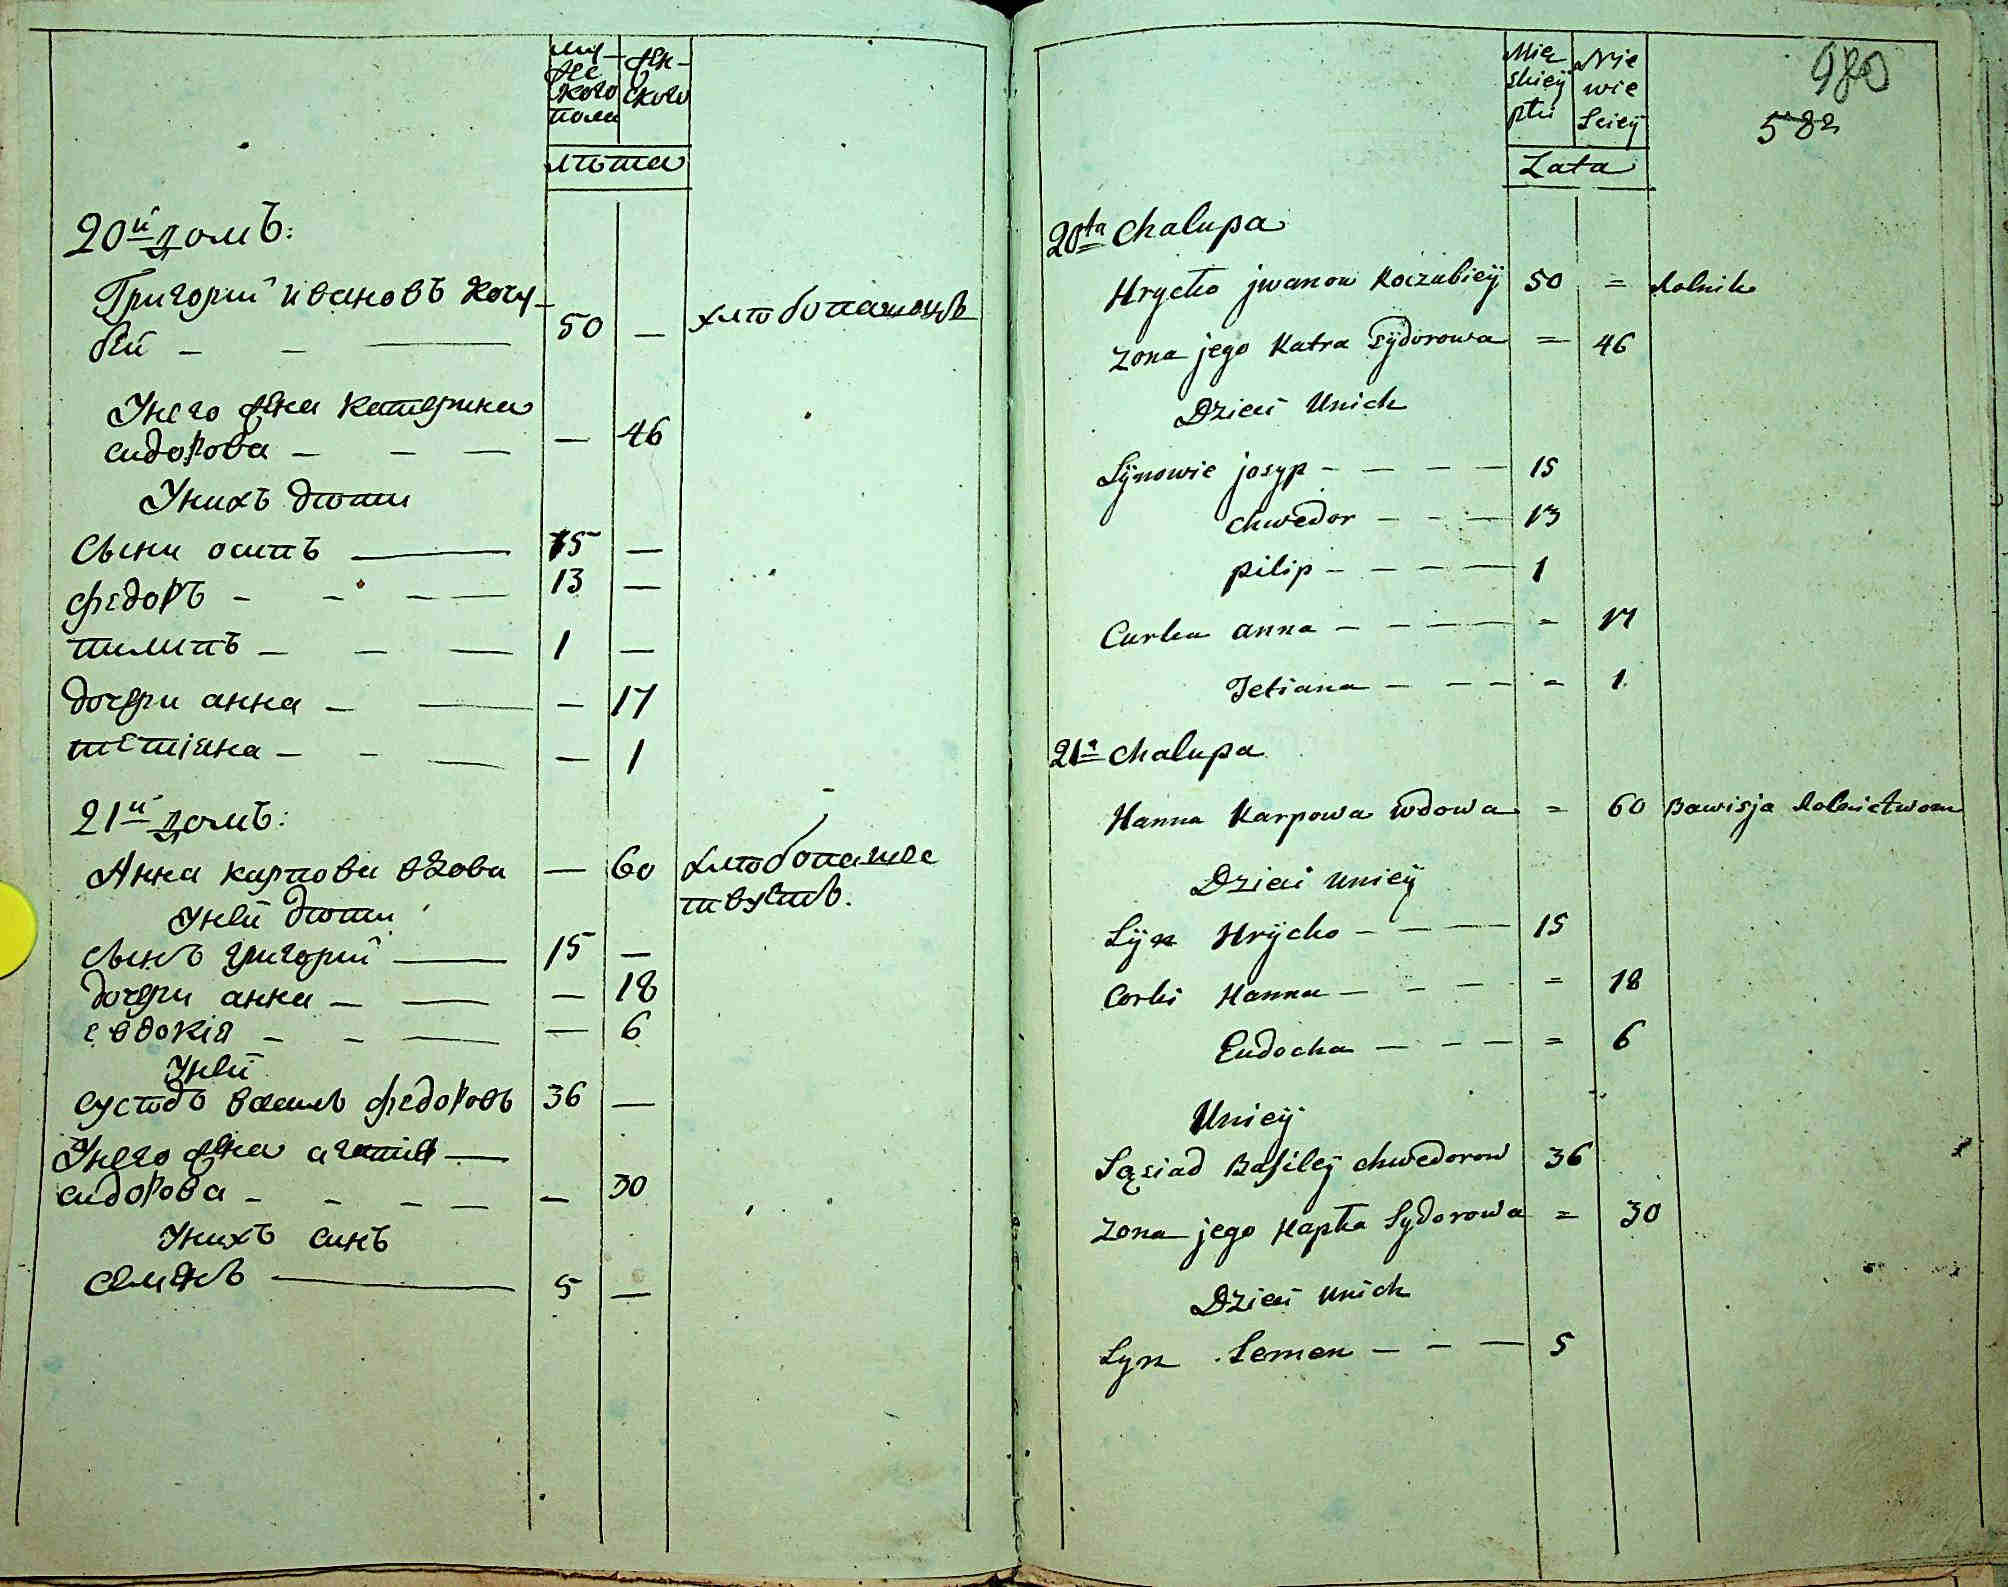 муже
ского
пола
жен-
ского
лѣта
20й домъ:
Григорий ивановъ Кочу-
бей — — — 50 — хлѣбопашецъ
Унего жена Катерина
сидорова — — — — 46
Унихъ дѣти
Сыни осипъ — 15 —
федоръ — — — — 13 —
пилипъ — — — 1 —
дочери анна — — — 17
тетіяна — — — — 1
21й домъ:
Анна карпова вдова — 60 хлѣбопашес
твуетъ.
Уней дѣти
сынъ григорий — 15 —
дочери анна — — — 18
евдокія — — — — 6
Уней
сусѣдъ василь федоровъ 36 —
Унего жена агатія —
сидорова — — — — — 30
Унихъ синъ
семенъ — 5 —
980
582
Męz
skiey
płci
Nie
wie
sciey
Lata
20ta Chalupa
Hrycko jwanow Koczubieÿ 50 = Rolnik
zona jego Katra Sÿdorowa = 46
Dzieci Unich
Sÿnowie josyp — — — — 15
chwedor — — — 13
pilip — — — — 1
Curka anna — — — — = 17
Tetiana — — — = 1
21a Chalupa
Hanna Karpowa wdowa = 60 Bawisja Rolnictwom
Dzieci Unieÿ
Sÿn Hrÿcko — — — 15
Corki Hanna — — — = 18
Eudocha — — — = 6
Unieÿ
Sąsiad Basileÿ chwedorow 36
zona jego Hapka Sydorowa = 30
Dzieci Unich
Syn Semen — — — 5